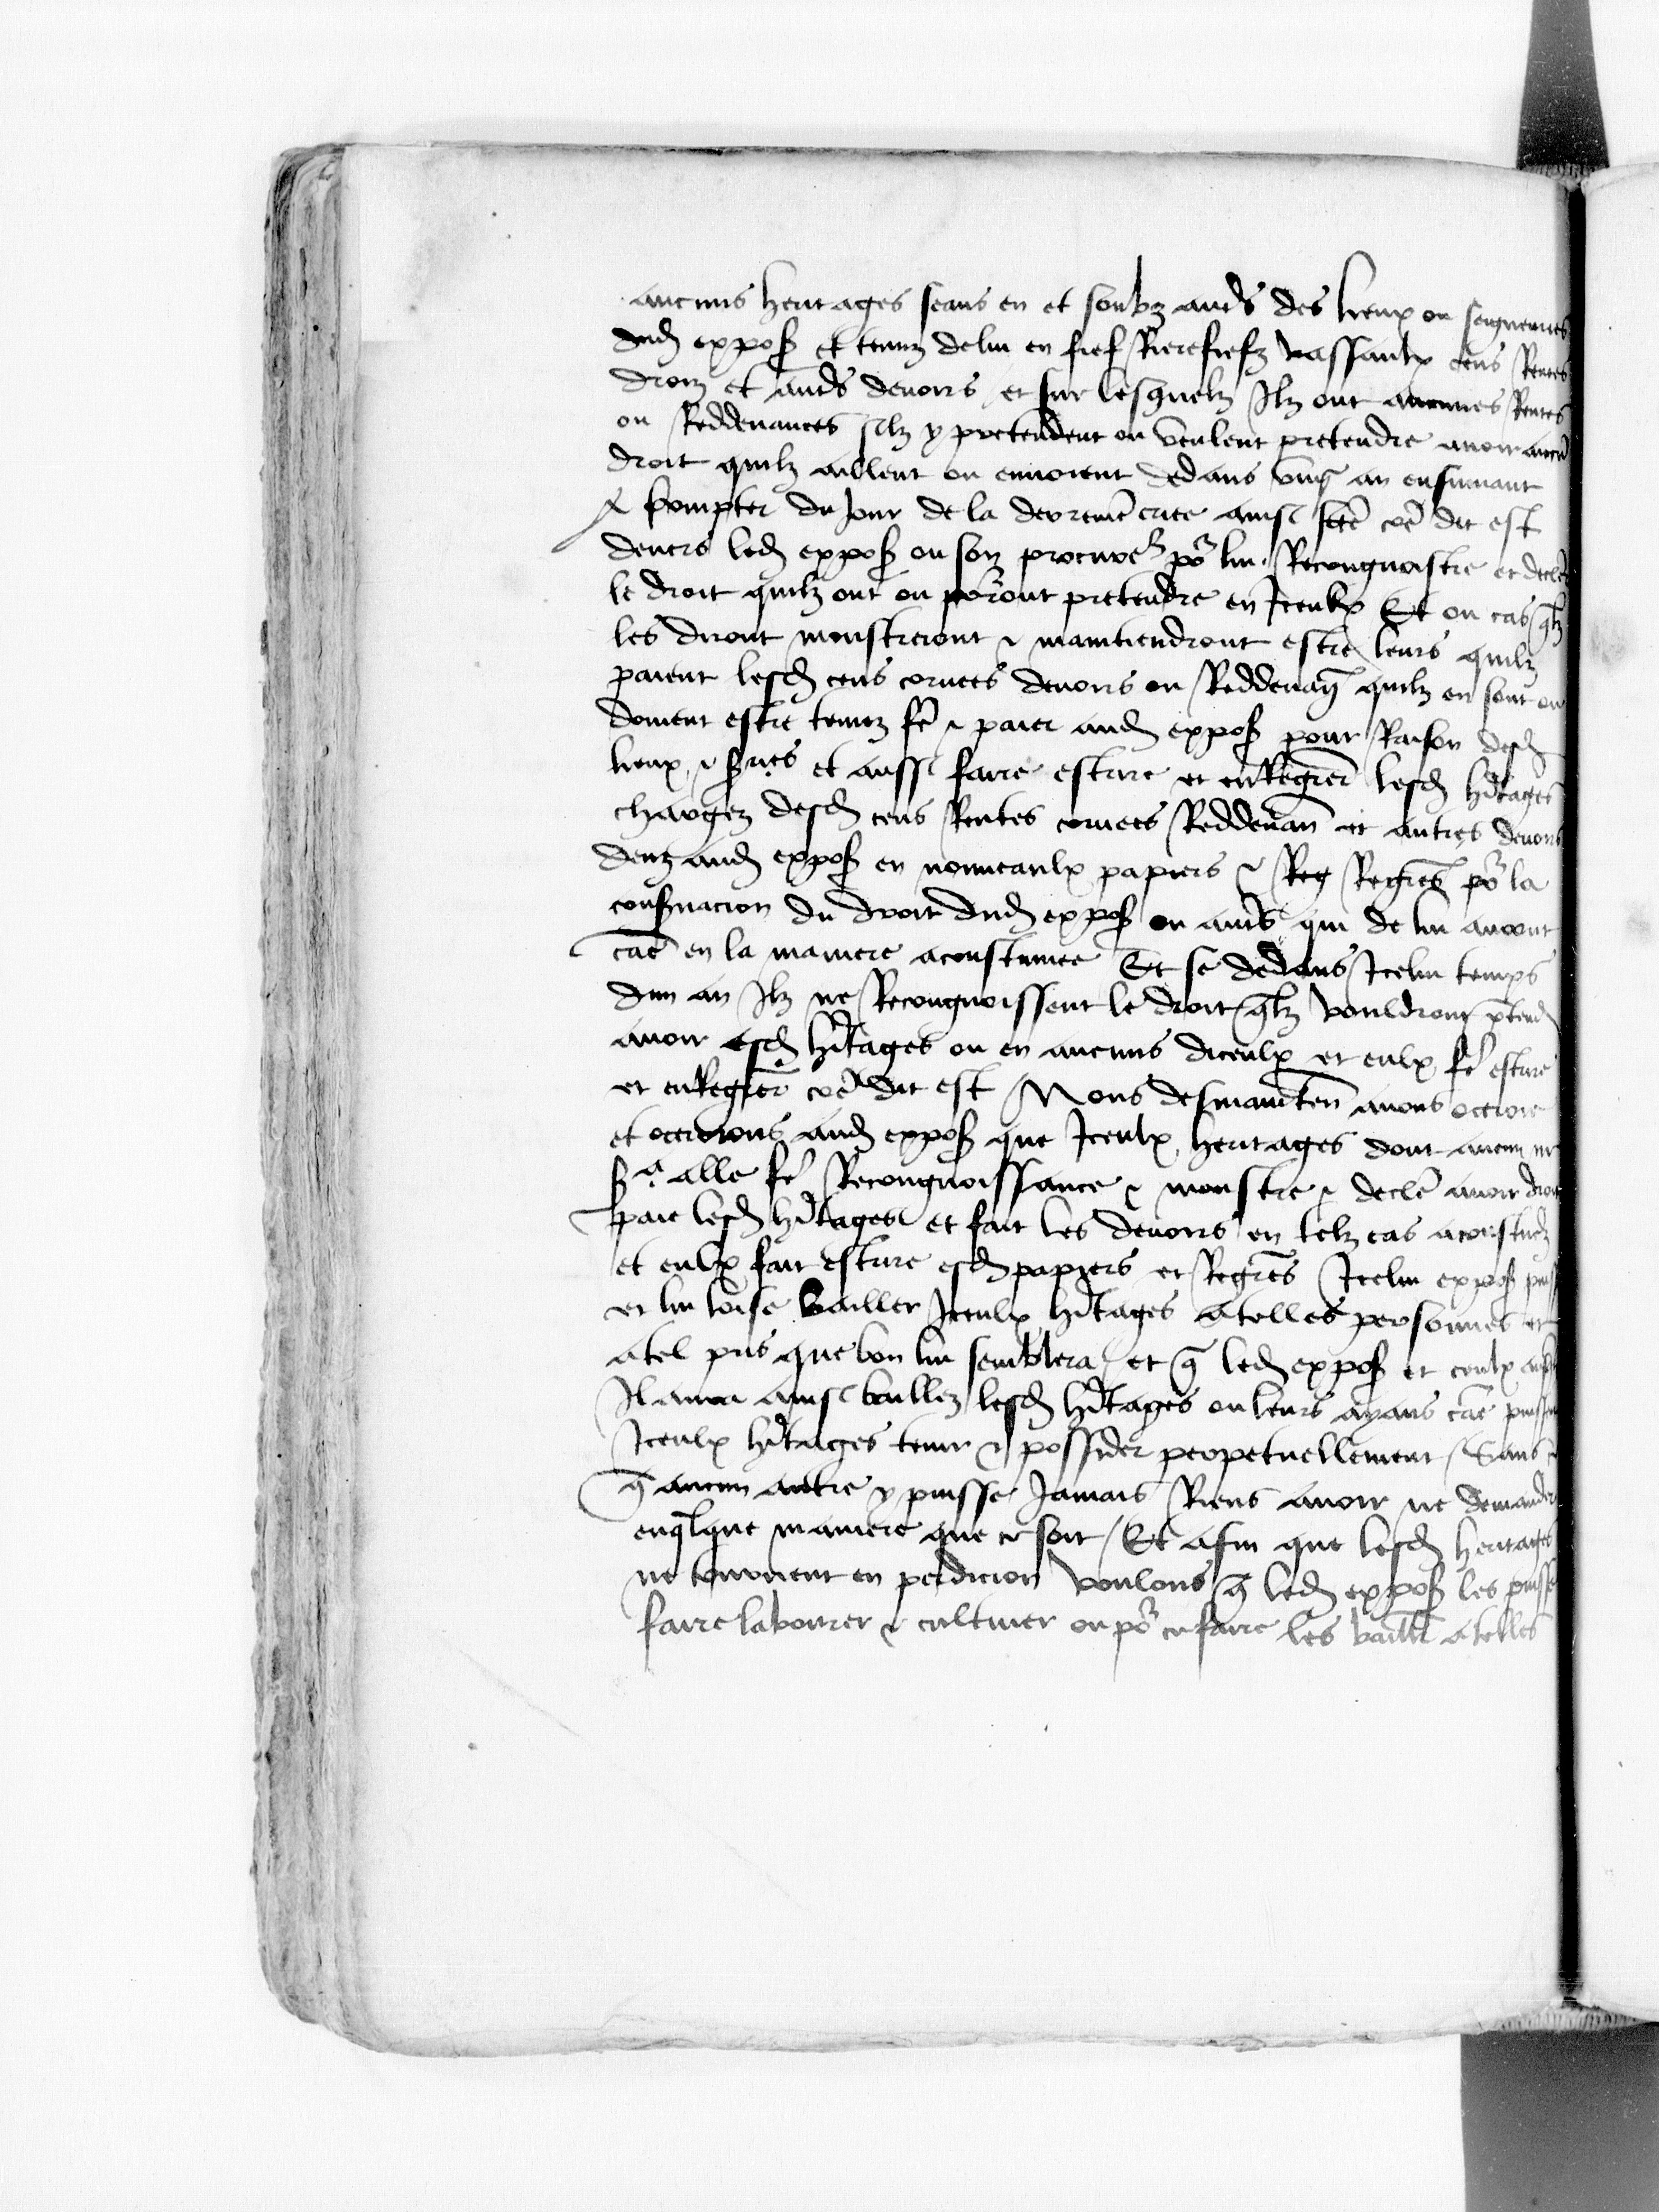 aucuns heritages seans en et soubz aucūs des lieux ou seigneuries
dud exposˢ et tenuz de lui en fief Rierefiefz vassaulx cens Rentes
droiz et autrs devoirs et sur lesquelz Ilz ont aucunes Rentes
ou Reddevances silz y pretendent ou veulent pretendre avoir aucū
droit quilz aillent ou envoient dedans ung an ensuivant
A compter du Jour de la derreniē criee ainsi fctē cōe dit est
devers led exposˢ ou son procureˢ po͛ lui Recongnoistre et declēr
le droit quilz ont ou porront pretendre en Iceulx Et ou cas qlz
les diront monstreront & maintiendront estre leurs quilz
paient lesd cens corvees devoirs ou Reddevancˢ quilz en sont ou
doivent estre tenuz fē & paier aud exposˢ pour Raison desd
lieux & sries et aussi faire escrire et enRegrer lesd hītages
chargez desd cens Rentes corvees Reddevan et autres devoirs
deuz aud exposˢ en nouveaulx papiers & Reg Regrēs po͛ la
conservacion du droit dud exposˢ ou autrs qui de lui auront
caē en la maniere acoustumee Et se dedans Icelui temps
dun an Ilz ne Recongnoissent le droit qlz vouldront p̄tend
avoir esd hītages ou en aucuns diceulx et eulx fē escrire
et enRegrer cōe dit est Nous desmainten avons octroie
et octroions aud exposˢ que Iceulx heritages dont aucun ne
sᵃ alle fē Recongnoissance & monstre & declē avoir droit
paie lesd hītages et fait les devoirs en telz cas acoustuez
et eulx fait escrire esd papiers et Regrēs Icelui exposˢ puisse
et lui loise bailler Iceulx hītages a telles personnes et
a tel pris que bon lui semblera et q̄ led exposˢ et ceulx ausqlz
Il aura ainsi baillez lesd hītages ou leurs ayans caē puissent
Iceulx hītages tenir & possider perpetuellement Sans
q̄ aucun autre y puisse Jamais Riens avoir ne demander
en qlque maniere que ce soit Et afin que lesd heritages
ne tournent en perdicion voulons q̄ led exposˢ les puisse
faire labourer & cultiver ou po͛ ce faire les baill a telles